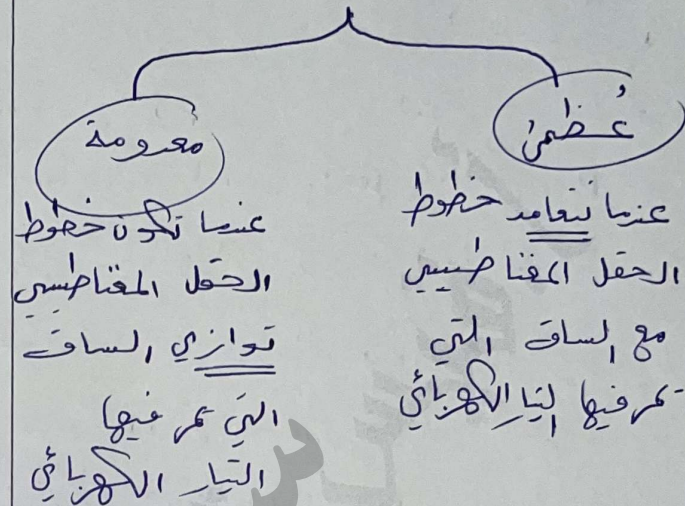 عُظمى
عندما تتعامد خطوط
الحقل المغناطيسي
مع الساق التي
تمر فيها التيار الكهربائي
معدومة
عندما تكون خطوط
الحقل المغناطيسي
توازي الساق
التي تمر فيها
التيار الكهربائي